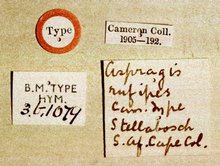 Type
Cameron Coll.
1905—192.
B.M. TYPE
HYM.
3.c.1079
Aspragis
rufipes
Cam. Type
Stellabosch
S. Af. Cape Col.